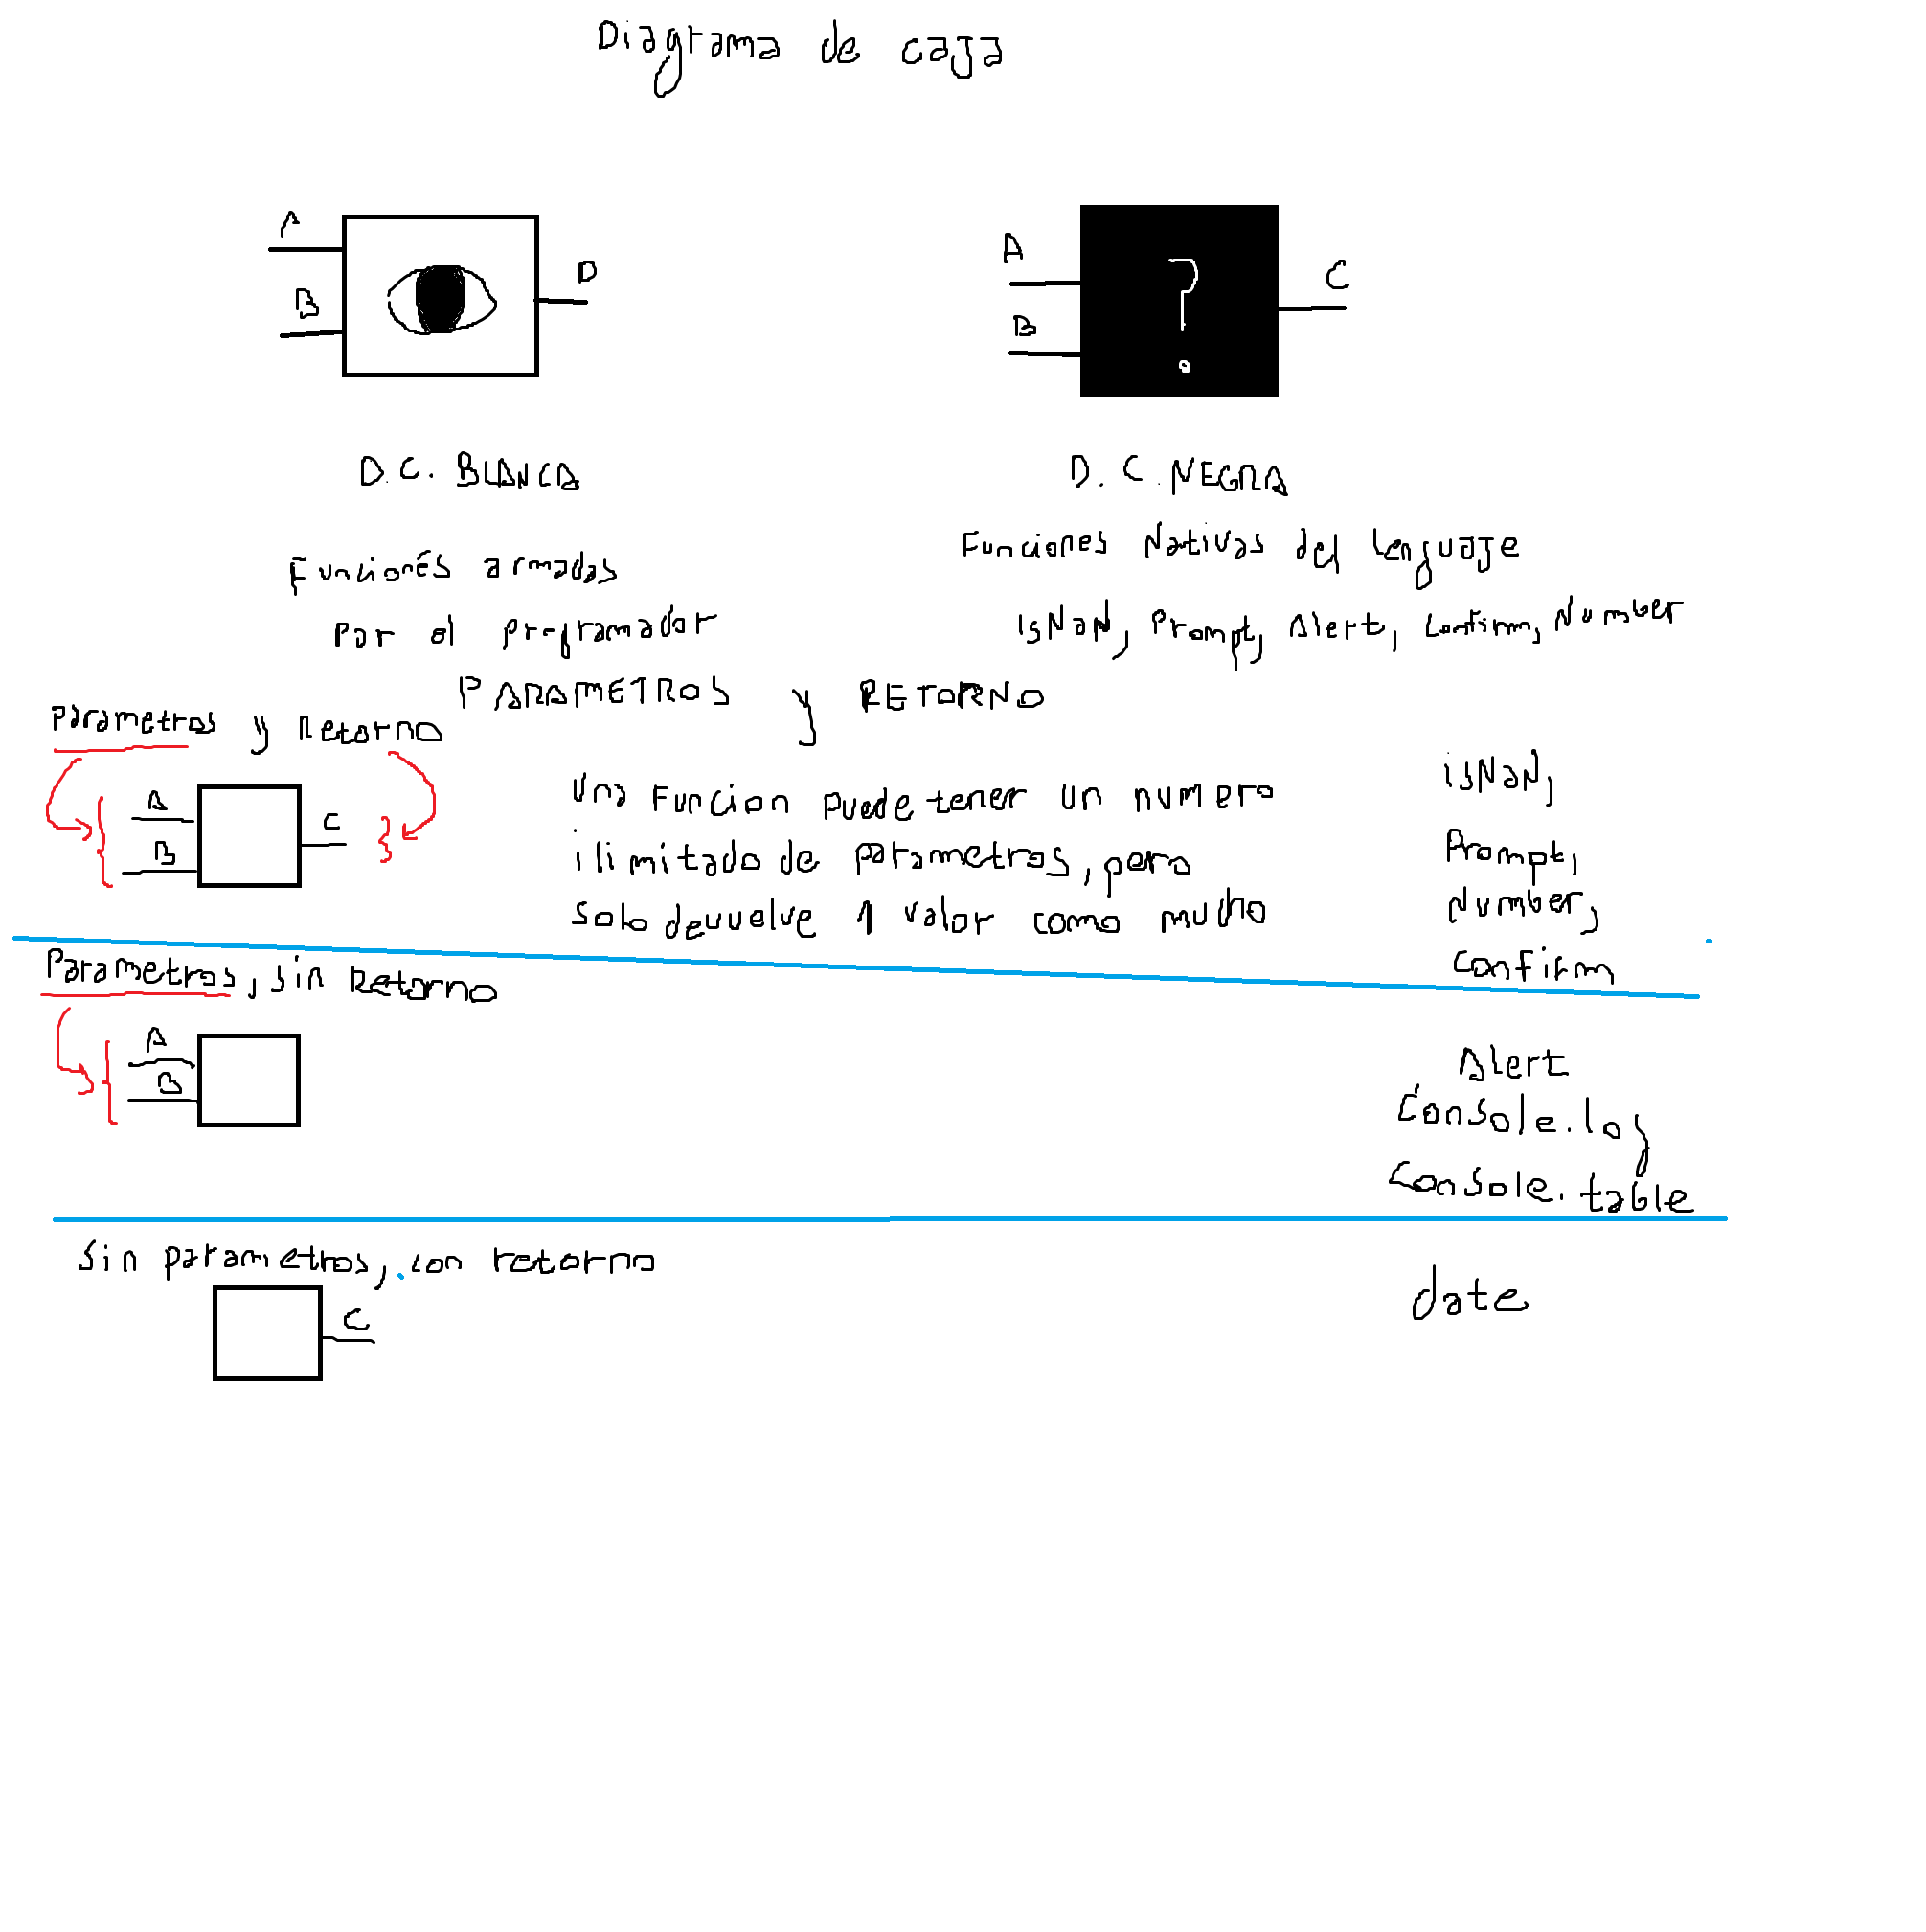 Diagrama de caja
A
B
D
A
B
C
?
D.C. BLANCA
D.C. NEGRA
Funciones armadas
Por el programador
Funciones Nativas del lenguaje
isNaN, Prompt, Alert, Confirm, Number
PARAMETROS y RETORNO
Parametros y Retorno
A
B
C
Una Funcion puede tener un numero
ilimitado de parametros, pero
solo devuelve 1 valor como mucho
isNaN,
Prompt,
Number,
Confirm
Parametros, sin Retorno
A
B
Alert
Console.log
Console.table
Sin parametros, con retorno
C
date